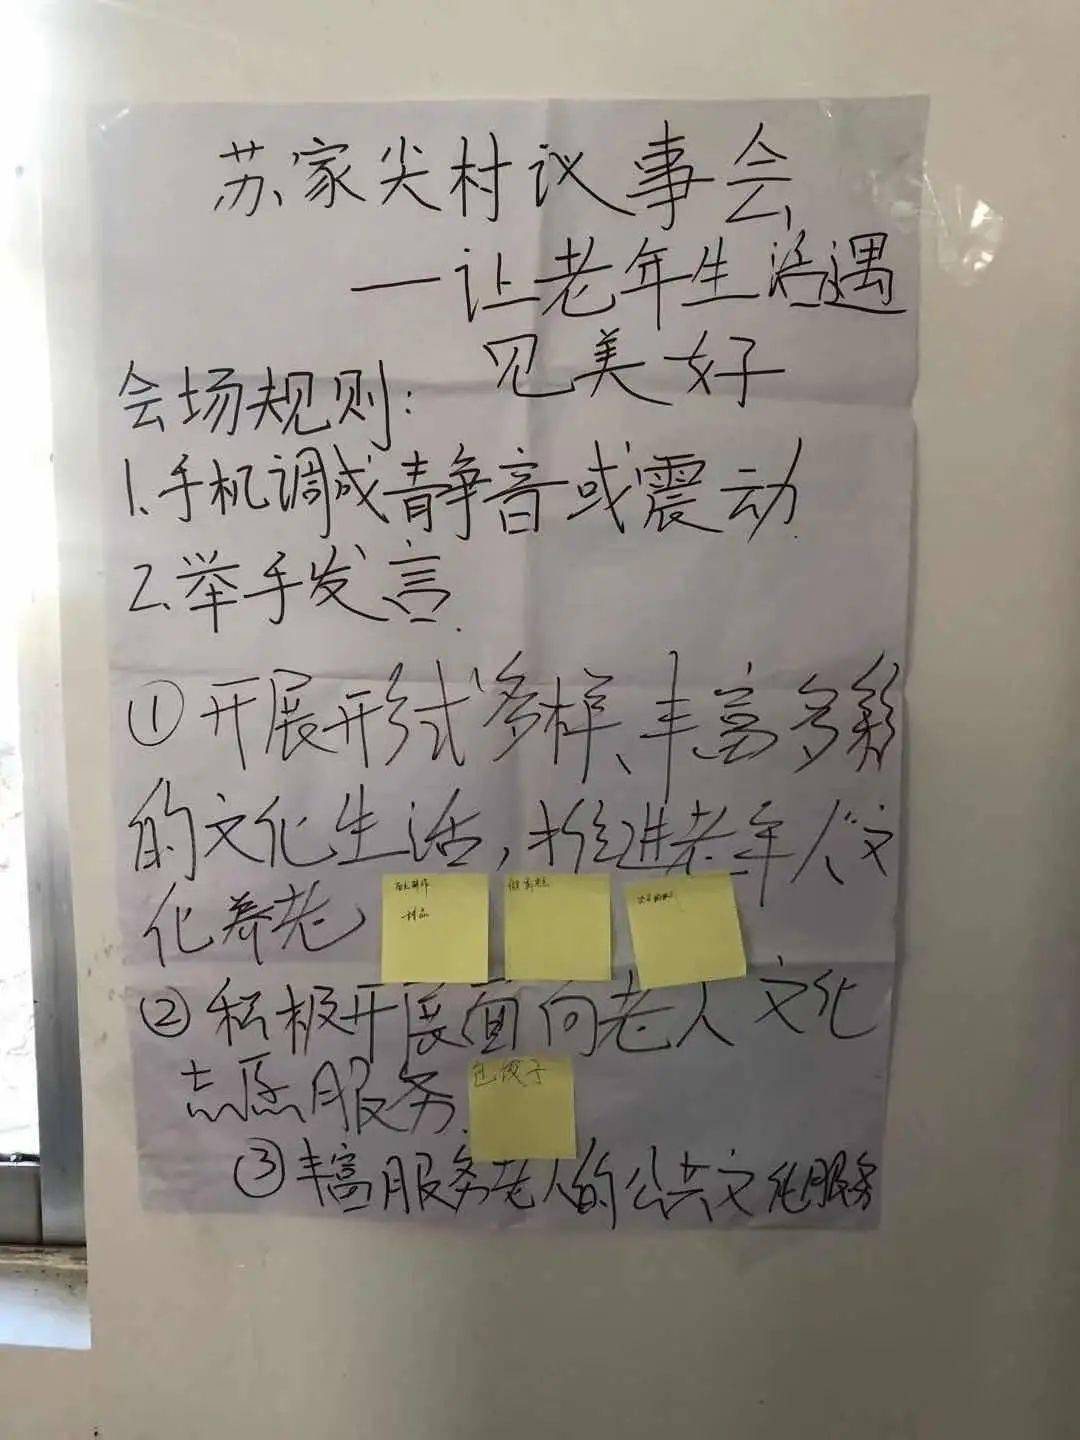 苏家尖村议事会
—让老年生活遇
见美好
会场规则:
1.手机调成静音或震动
2.举手发言.
①开展形式多样、丰富多彩
的文化生活,推进老年人文
化养老
②积极开展面向老人文化
志愿服务.
包饺子
③丰富服务老人的公共文化服务